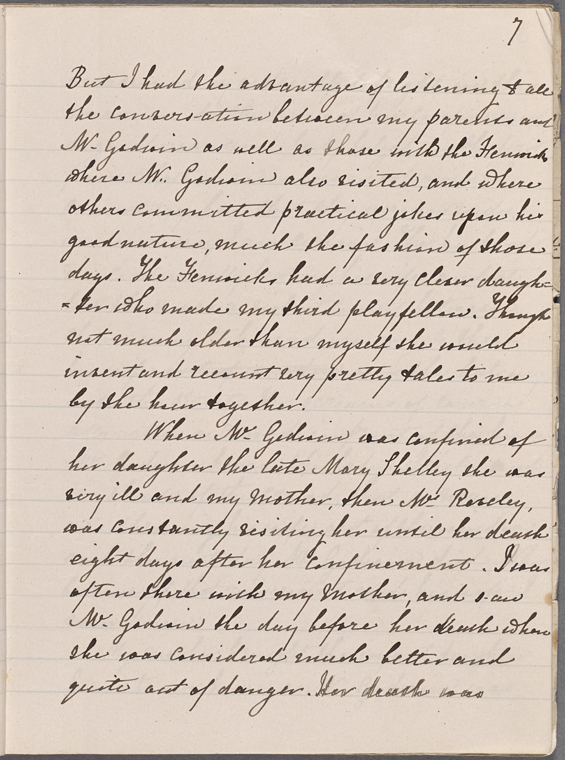 7
But I had the advantage of listening to all
the conversation between my parents and
Mr. Godwin as well as those with the Fenwicks
where Mr. Godwin also visited, and where
others committed practical jokes upon his
good nature, much the fashion of those
days. The Fenwicks had a very clever daugh=
=ter who made my third playfellow. Though
not much older than myself she would
invent and recount very pretty tales to me
by the hour together.
When Mrs. Godwin was confined of
her daughter the late Mary Shelley she was
very ill and my Mother, then Mrs Reveley,
was constantly visiting her until her death
eight days after her confinement. I was
often there with my Mother, and saw
Mrs. Godwin the day before her death when
she was considered much better and
quite out of danger. Her death was